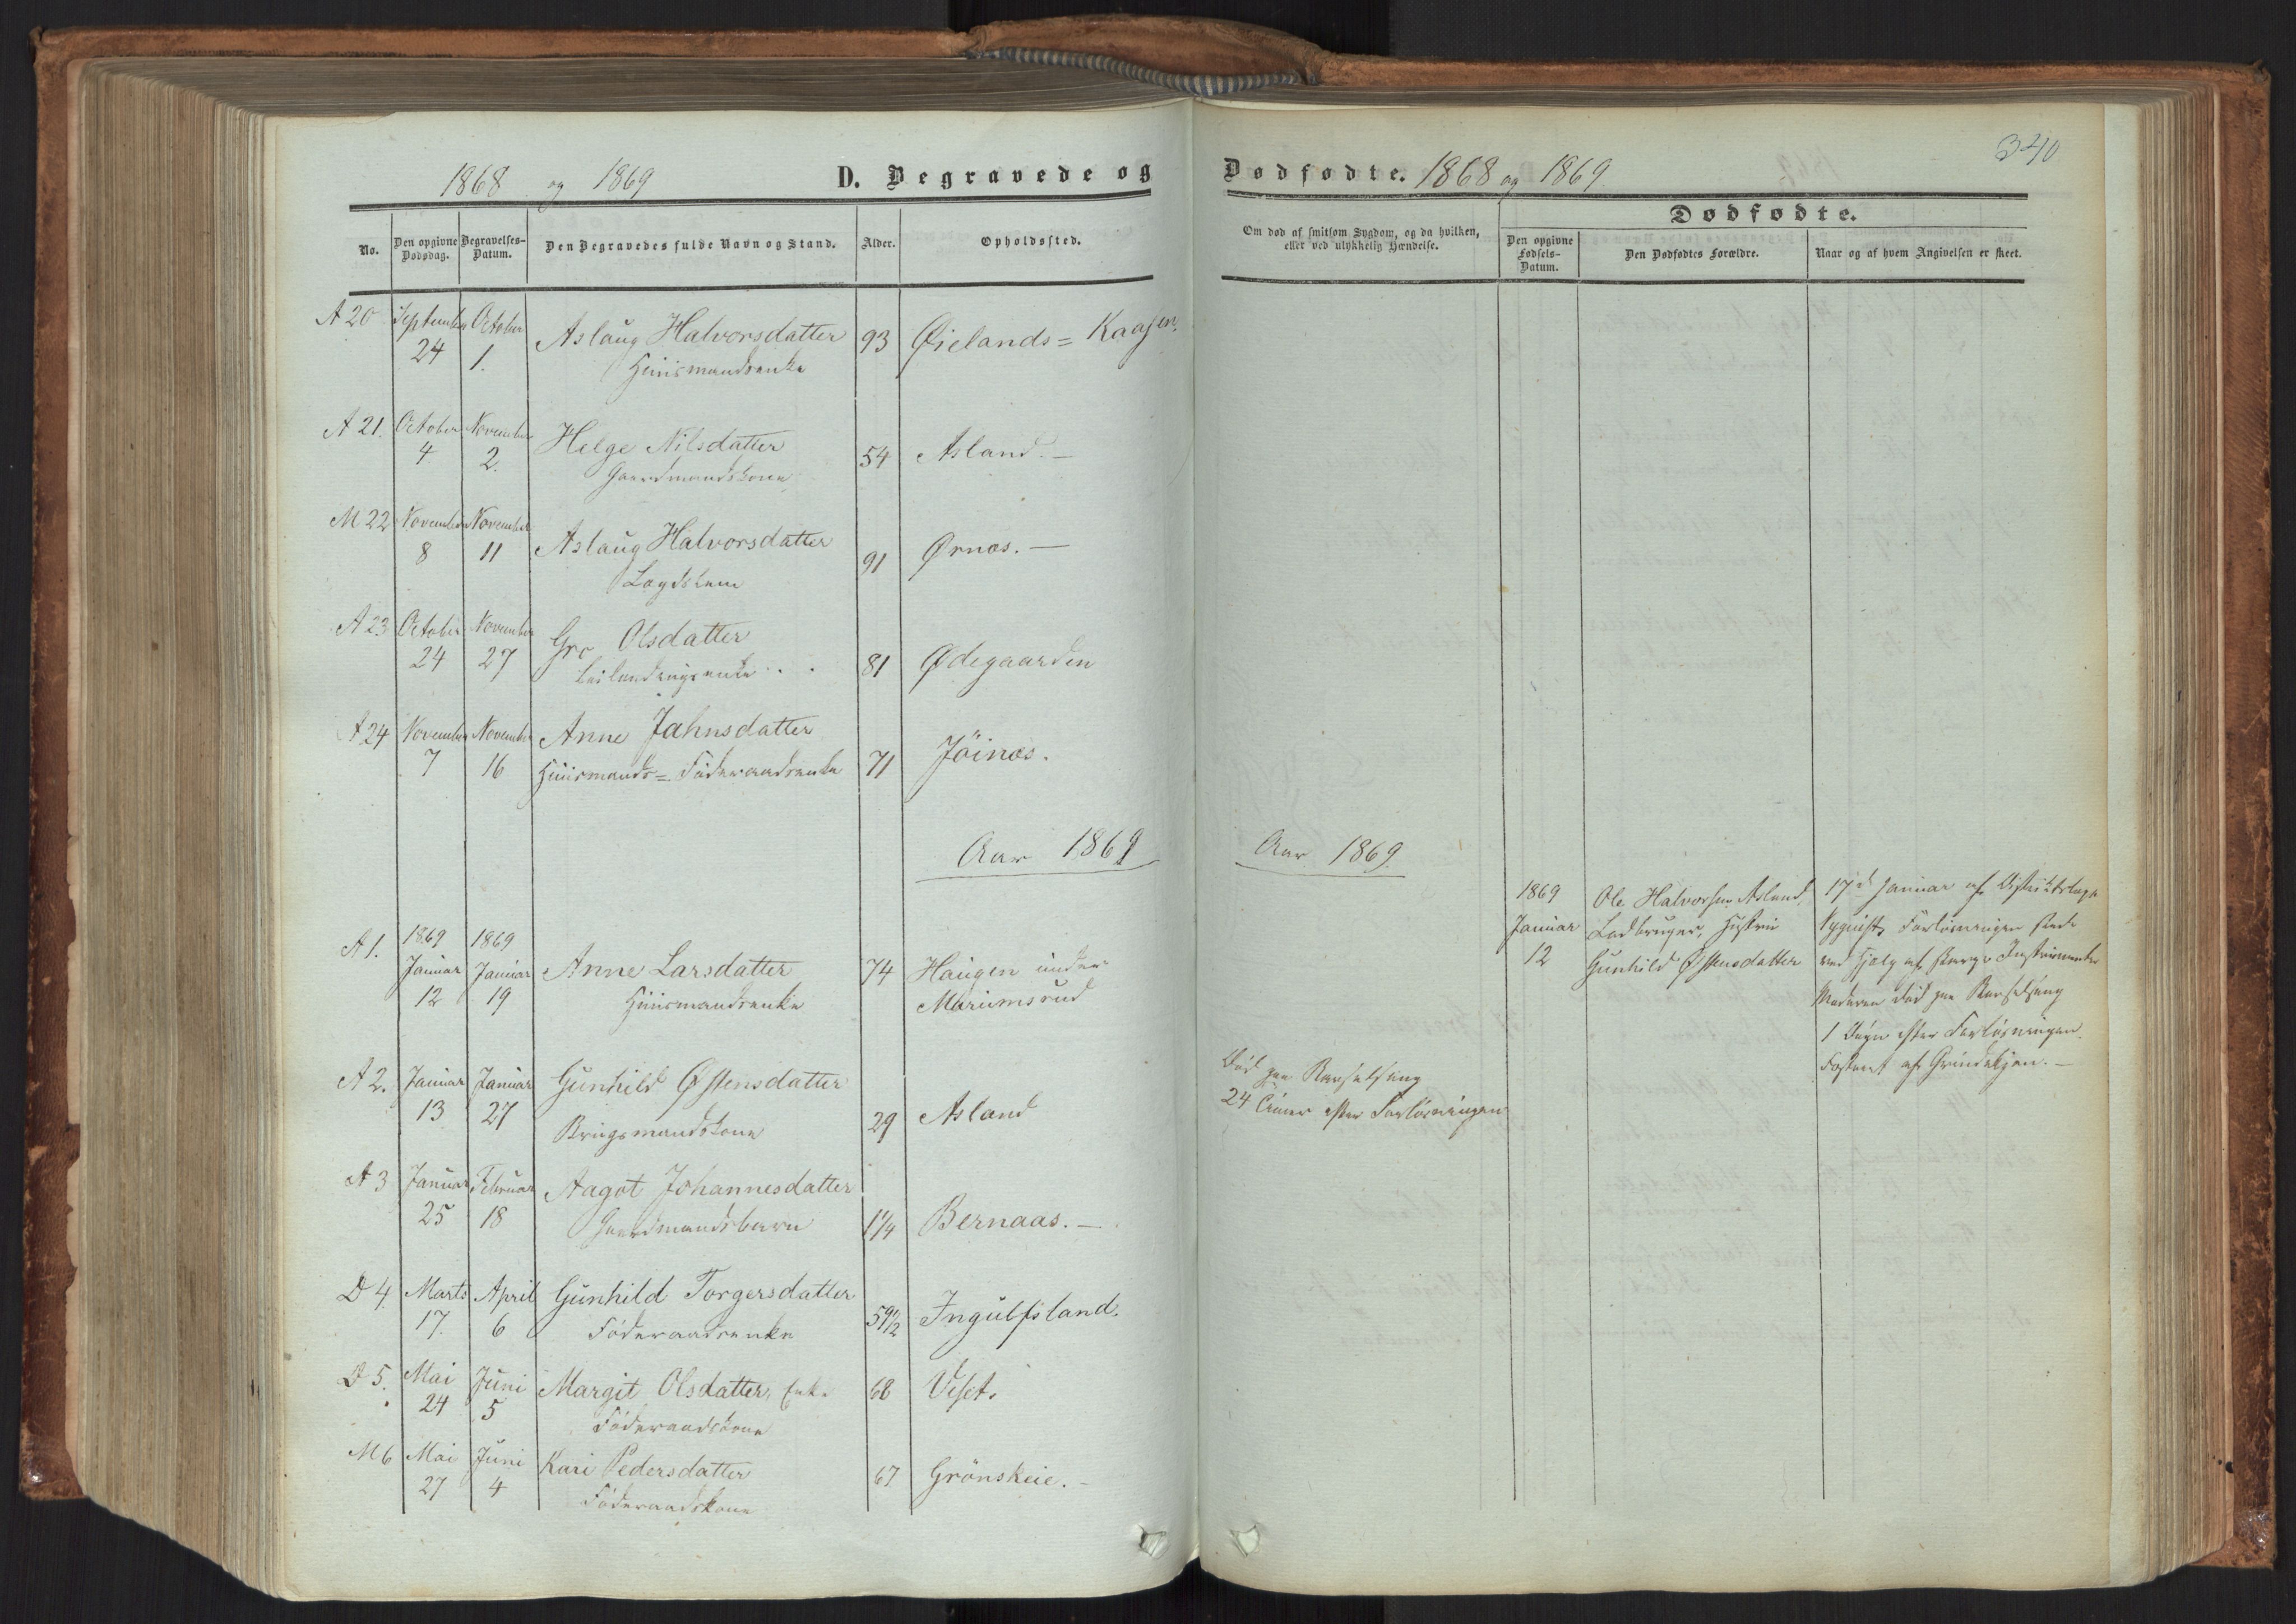 1868 og 1869 D. Begravede og
No. Den opgivne Dødsdag. Begravelses-Datum. Den Begravedes fulde Navn og Stand. Alder. Opholdssted.
A 20 September 24 October 1. Aslaug Halvorsdatter 93 Øielands = Kaasen.
Huusmandsenke
A 21. October 4 November 2. Helge Nilsdatter 54 Asland. —
Gaardmandskone
M 22 November 8 November 11 Aslaug Halvorsdatter 91 Ørnæs. —
Lægdslem
A 23 October 24 November 27 Gro Olsdatter 81 Ødegaarden
Leilændingsenke
A 24 November 7 November 16 Anne Jahnsdatter 71 Jöinæs.
Huusmands = Föderaadsenke
Aar 1869
A 1. 1869 Januar 12 1869 Januar 19 Anne Larsdatter 74 Haugen under
Huusmandsenke Mariumsrud
A 2. Januar 13 Januar 27 Gunhild Østensdatter 29 Asland
Brugsmandskone
A 3 Januar 25 Februar 18 Aagot Johannesdatter 1 1/4 Bernaas. —
Gaardmandsbarn
D 4. Marts 17. April 6 Gunhild Torgersdatter 59 1/2 Ingulfsland.
Föderaadsenke
D 5. Mai 24 Juni 5 Margit Olsdatter, Enke 68 Veset.
Föderaadskone
M 6 Mai 27 Juni 4 Kari Pedersdatter 67 Grönskeie. -
Föderaadskone
Dødfødte. 1868 og 1869. 340
Dødfødte.
Om død af smitsom Sygdom, og da hvilken,
eller ved ulykkelig Hændelse.
Den opgivne Fødsels-Datum. Den Dødfødtes Forældre. Naar og af hvem Angivelsen er skeet.
Aar 1869.
1869 Ole Halvorsen Asland, 17d Januar af Distriktslæge
Januar Hustru Nyquist, Forløsningen skede
12 Gunhild Østensdatter ved Hjælp af skarpe Instrumenter
Moderen död paa Barselseng
1 Døgn efter Forløsningen.
Död paa Barselseng
24 Timer efter Forløsningen